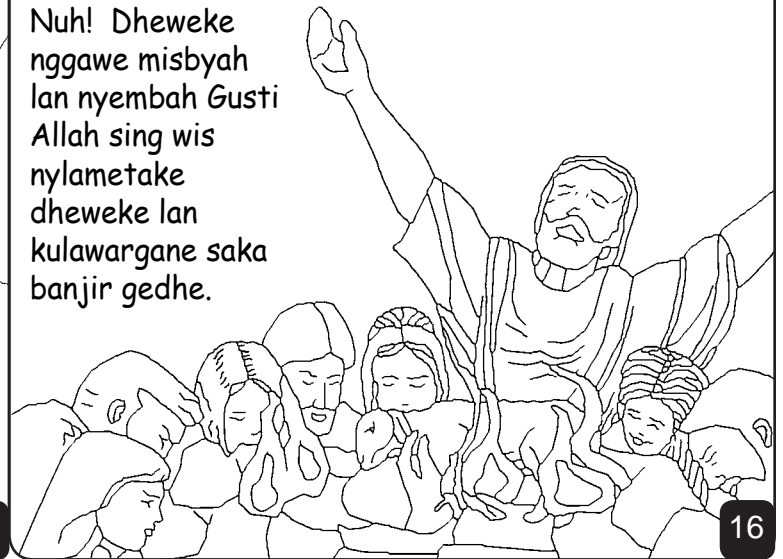 Nuh! Dheweke
nggawe misbyah
lan nyembah Gusti
Allah sing wis
nylametake
dheweke lan
kulawargane saka
banjir gedhe.
16